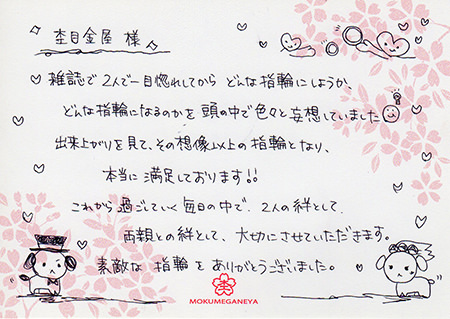 杢目金屋 様
雑誌で2人で一目惚れしてから どんな指輪にしようか、
どんな指輪になるのかを 頭の中で色々と妄想していました
出来上がりを見て、その想像以上の指輪となり、
本当に満足しております!!
これから過ごしていく毎日の中で、2人の絆として、
両親との絆として、大切にさせていただきます。
素敵な指輪をありがとうございました。
MOKUMEGANEYA